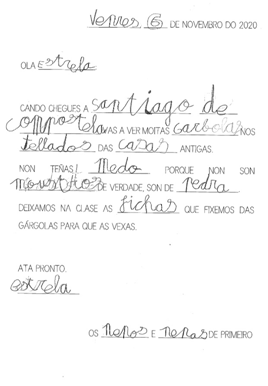 Venres 6 DE NOVEMBRO DO 2020
OLA Estrela
CANDO CHEGUES A santiago de
compostela VAS A VER MOITAS Garbolas NOS
tellados DAS casas ANTIGAS.
NON TEÑAS! Medo PORQUE NON SON
moustros DE VERDADE, SON DE Pedra
DEIXAMOS NA CLASE AS fichas QUE FIXEMOS DAS
GÁRGOLAS PARA QUE AS VEXAS.
ATA PRONTO.
estrela
OS nenos E nenas DE PRIMEIRO